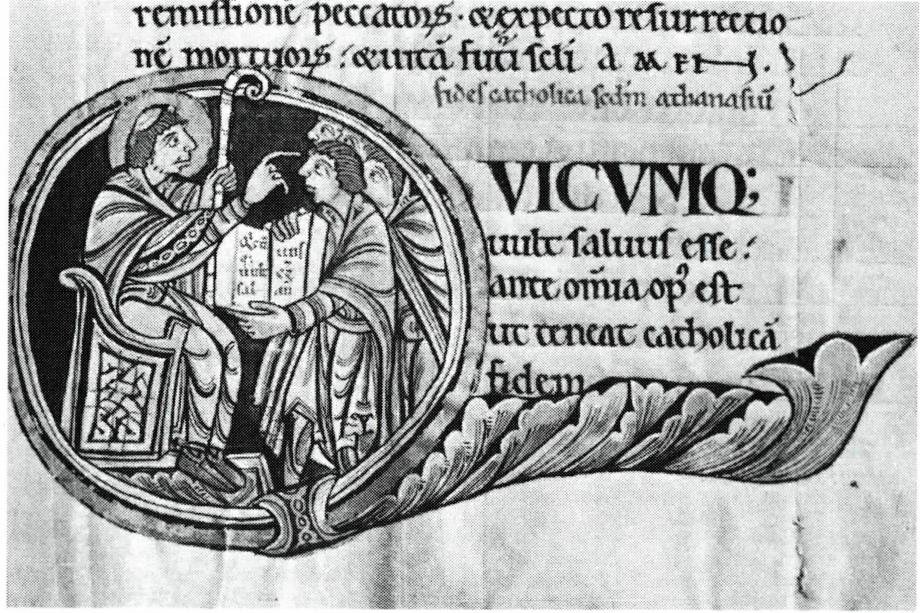 remissionē peccatoꝝ · & expecto resurrectio
nē mortuoꝝ : & uitā futi scli AMEN.
fides catholica scdm athanasiū
QUICUMQ;
uult saluus esse :
ante om̄ia op⁹ est
ut teneat catholicā
fidem